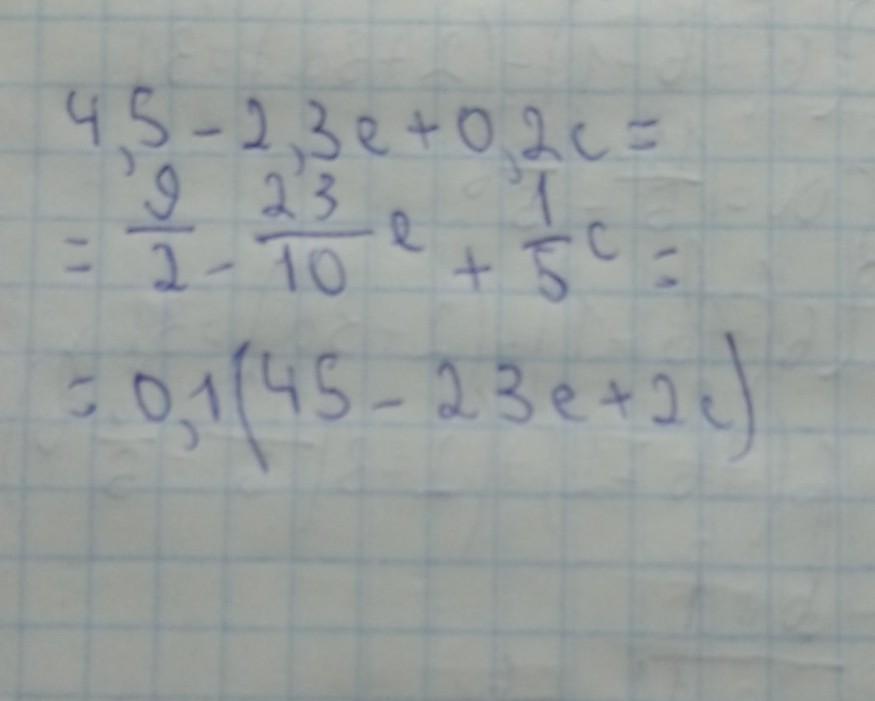 4,5 - 2,3e + 0,2c =
= 9/2 - 23/10 e + 1/5 c =
= 0,1(45 - 23e + 2c)